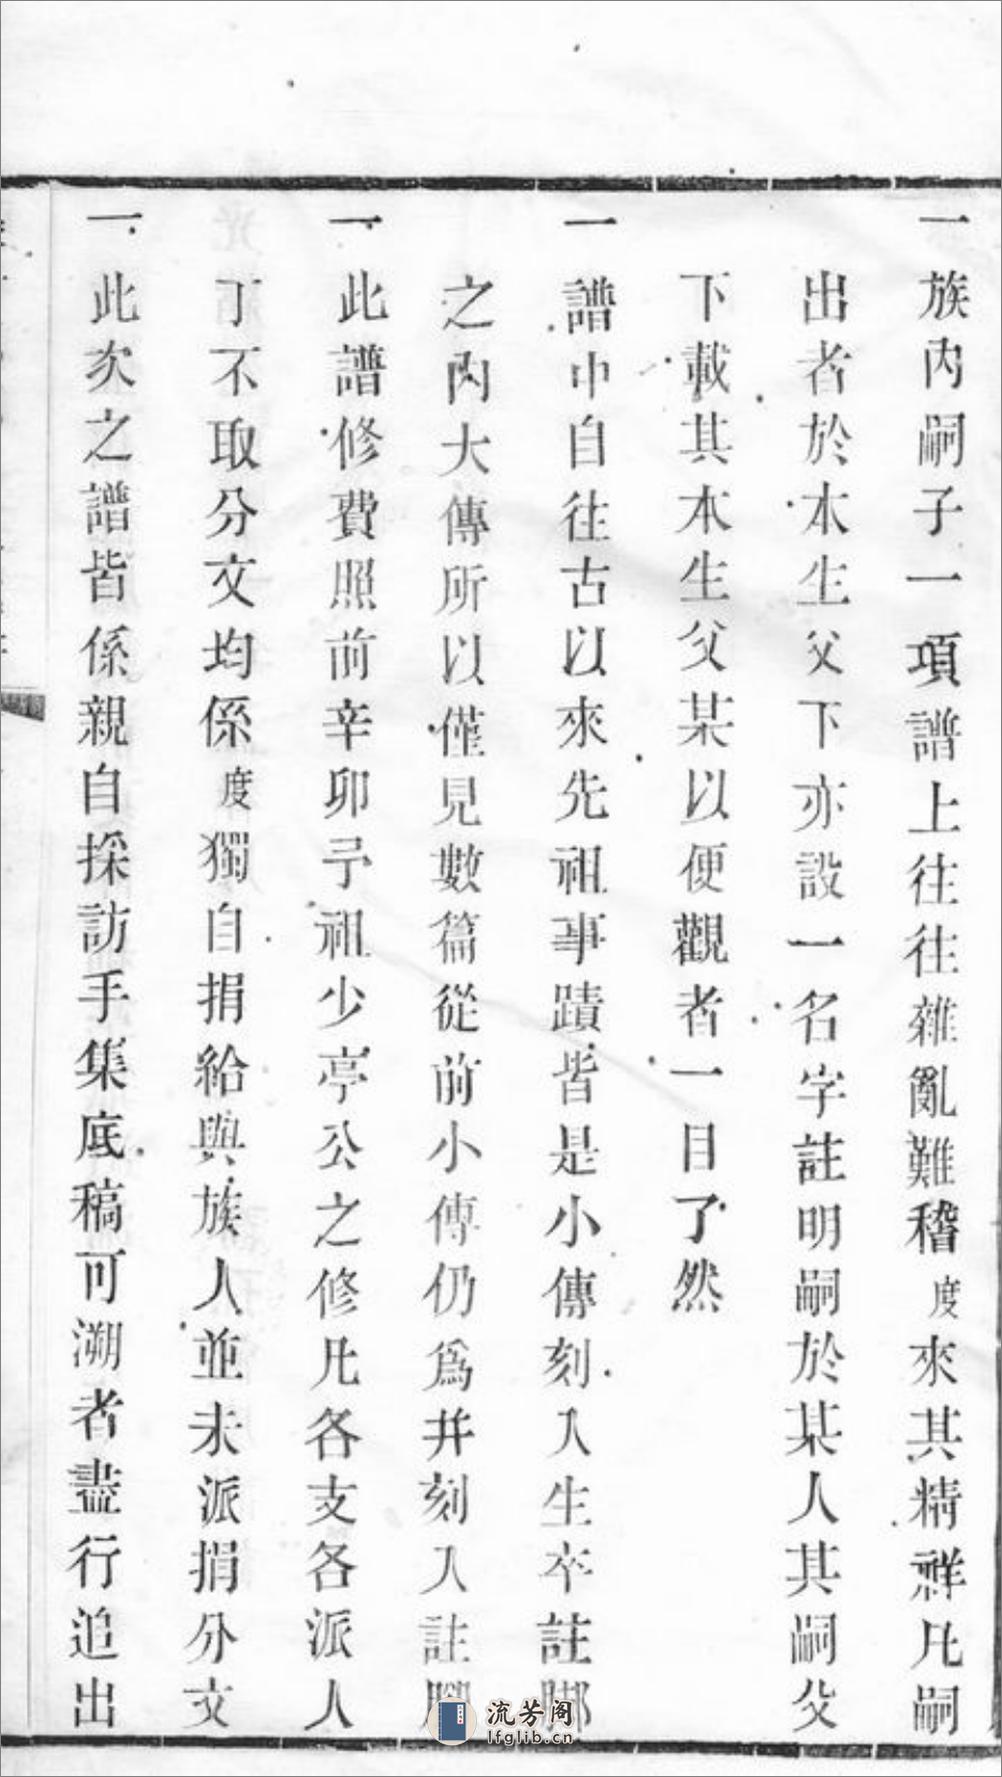 一族内嗣子一項譜上往往雜亂難稽度來其精祥凡嗣
出者於本生父下亦設一名字註明嗣於某人其嗣父
下載其本生父某以便觀者一目了然
一譜中自往古以來先祖事蹟皆是小傳刻入生卒註脚
之內大傳所以僅見數篇從前小傳仍爲并刻入註腳
一此譜修費照前辛卯予祖少亭公之修凡各支各派人
丁不取分文均係度獨自捐給與族人並未派捐分文
一此次之譜皆係親自採訪手集底稿可溯者盡行追出
流芳阁
lfglib.cn